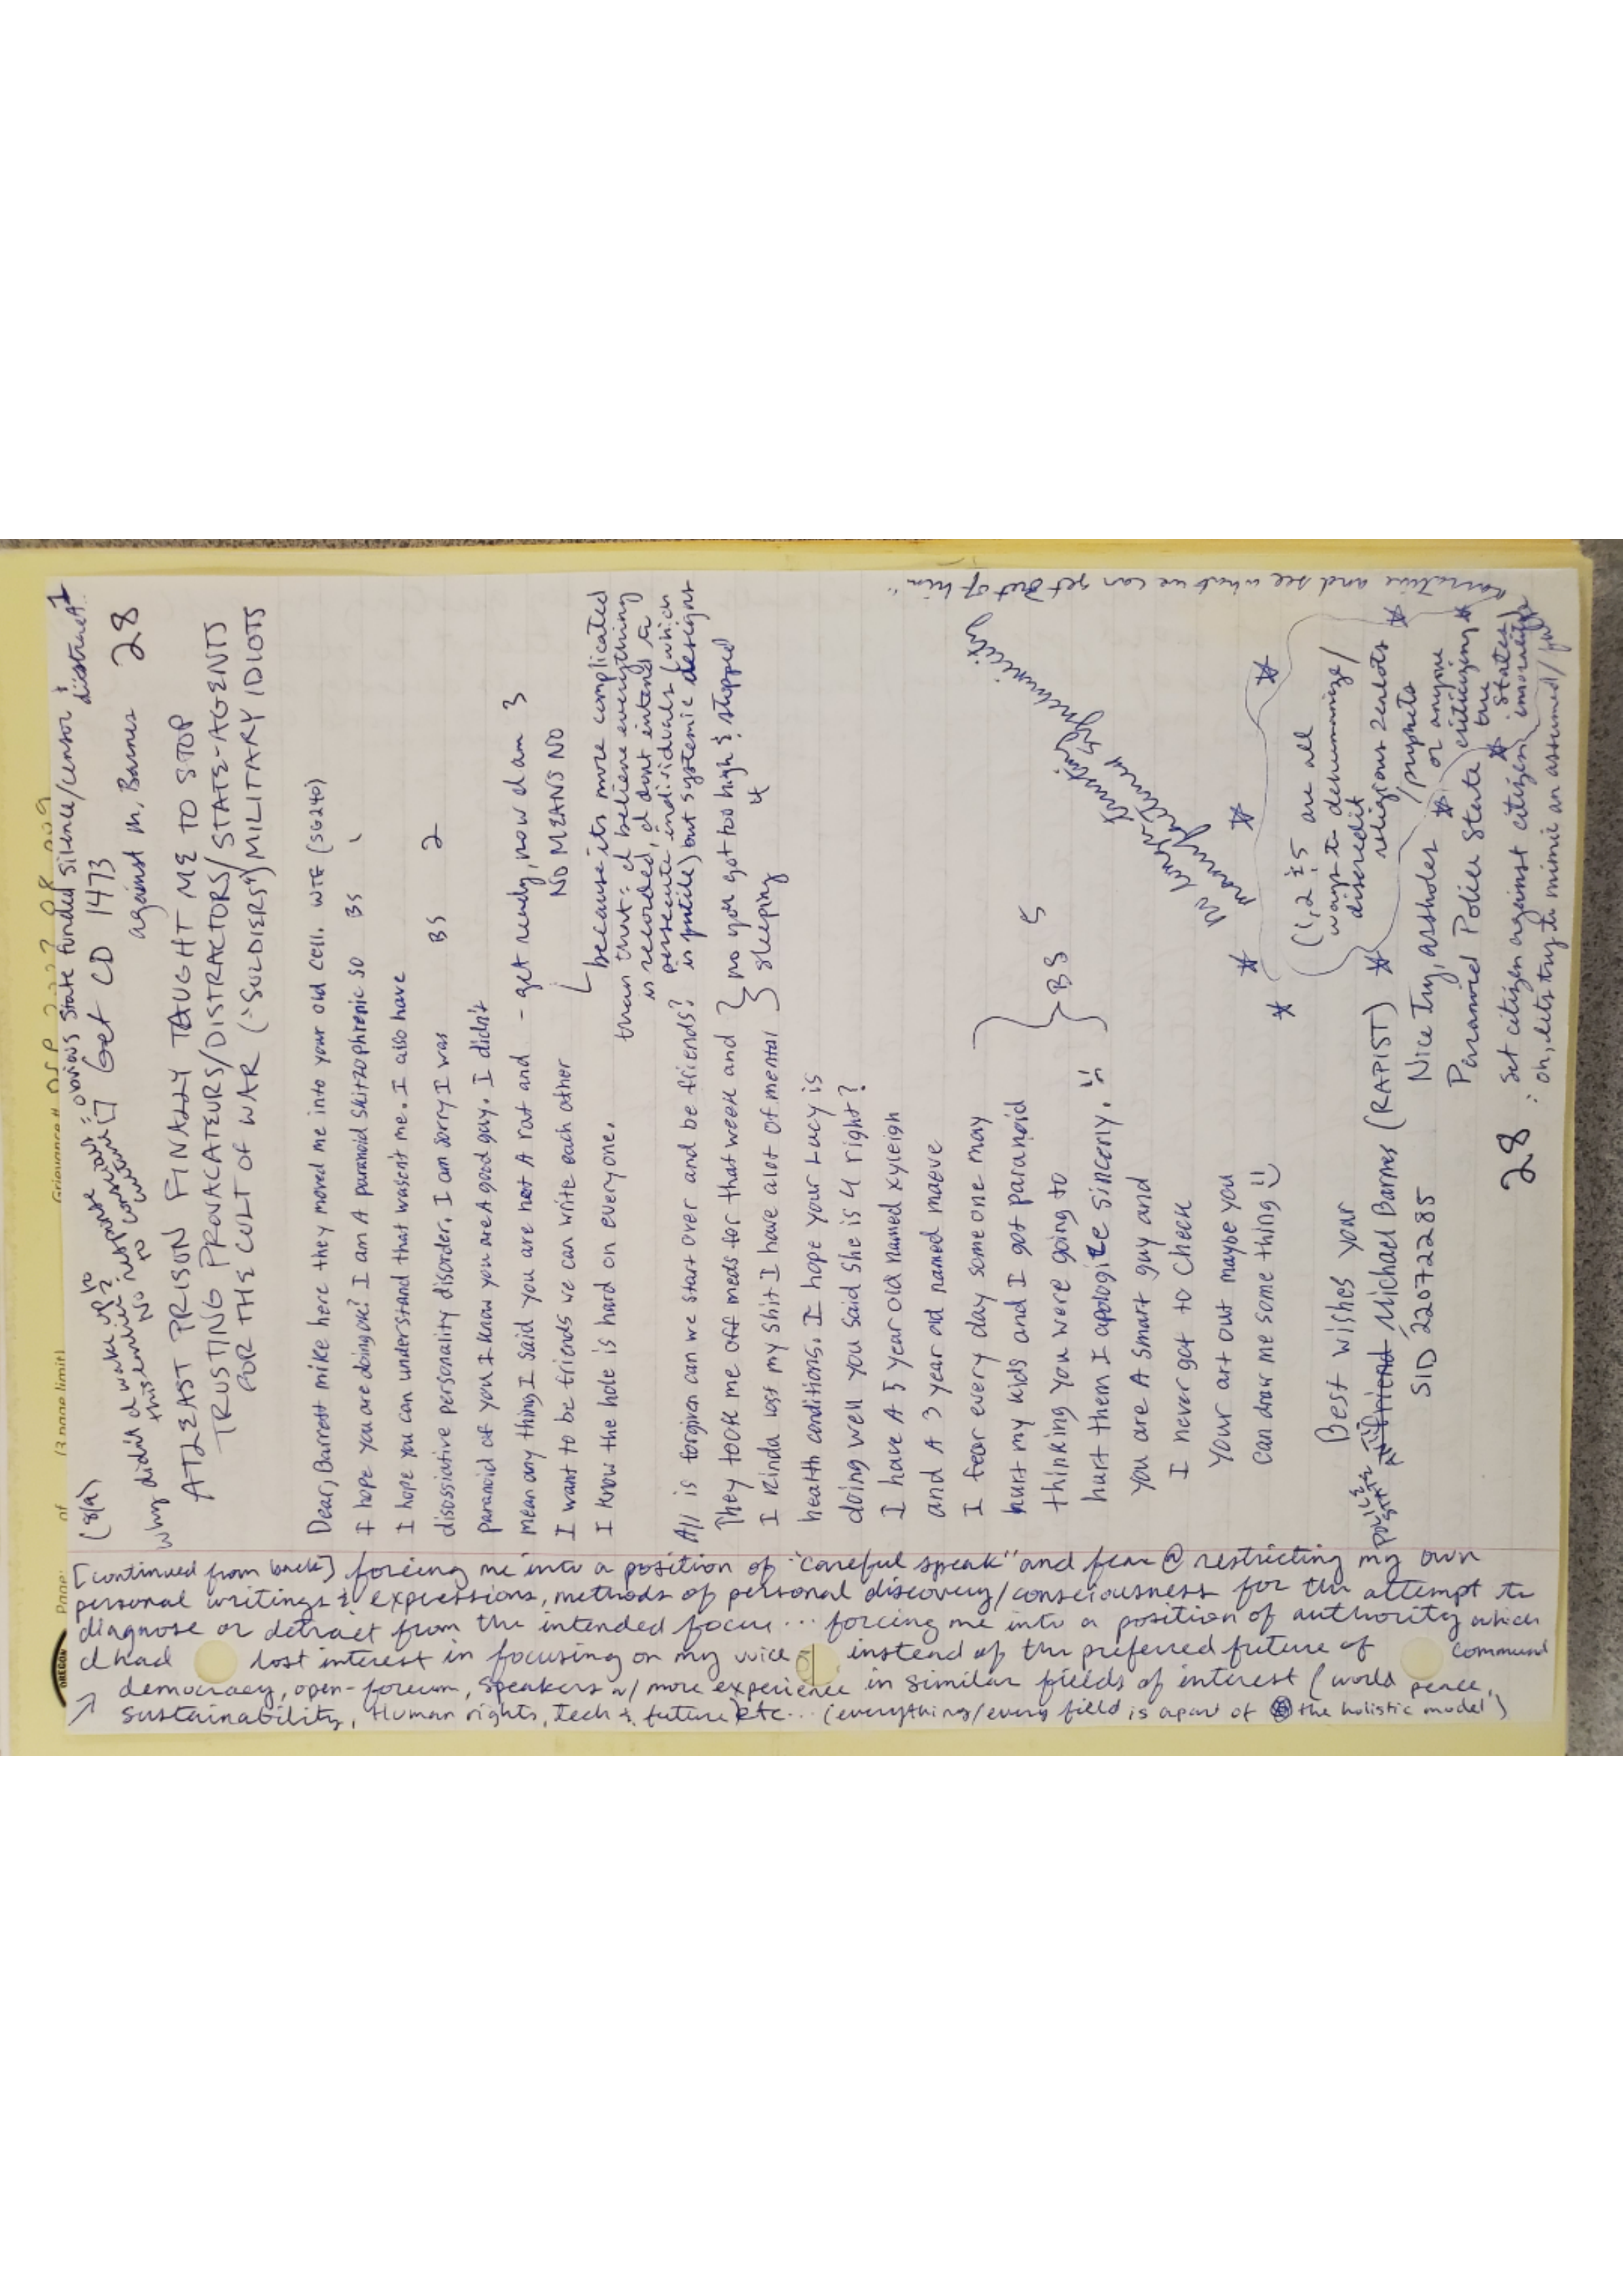 Page: of (3 page limit)
OREGON
(8/a)
why didn't I wake up to
this earlier?
response
NO response
no contact
obvious state funded silence/censor & distract 1
Get CD 1473
against M. Barnes 28
ATLEAST PRISON FINALLY TAUGHT ME TO STOP
TRUSTING PROVACATEURS/DISTRACTORS/STATE-AGENTS
FOR THE CULT OF WAR ("SOLDIERS") MILITARY IDIOTS
Dear, Barrett mike here they moved me into your old cell. WTF (SG240)
I hope you are doing ok? I am A paranoid skitzophrenic so BS 1
I hope you can understand that wasent me. I also have
disossiative personality disorder. I am sorry I was BS 2
Paranoid of you I know you are A good guy. I didn't
mean any thing I said you are not A rat and - get ready, now I am 3
I want to be friends we can write each other NO MEANS NO
I know the hole is hard on everyone.
because its more complicated
than that: I believe everything
is recorded, I dont intend to
persecute individuals (which
is futile) but systemic designs
All is forgiven can we start over and be friends?
They took me off meds for that week and } no you got too high & stopped
I kinda lost my shit I have alot of mental } sleeping 4
health conditions. I hope your Lucy is
doing well you said she is 4 right?
I have A 5 year old named xyleigh
and A 3 year old named maeve
I fear every day some one may
hurt my kids and I got paranoid } BS 5
thinking you were going to
hurt them I apologize sincerly. :(
You are A smart guy and
I never got to check
Your art out maybe you
can draw me some thing :)
no longer
trusting
(1, 2 & 5 are all
ways to dehumanize/
discredit
religious zealots
/prophets
or anyone
criticizing
the
States
immorality
Best wishes your
POLICE
STATE
friend Michael Barnes (RAPIST)
SID 22072285
Nice Try, assholes
Paranoid Police State
28
: set citizen against citizen
: oh, lets try to mimic an assumed
narrative and see what we can get out of him"
[continued from back] forcing me into a position of "careful speak" and fear @ restricting my own
personal writings & expressions, methods of personal discovery/consciousness for the attempt to
diagnose or detract from the intended focus... forcing me into a position of authority which
I had lost interest in focusing on my voice instead of the preferred future of command
democracy, open-forum, speakers w/ more experience in similar fields of interest (world peace,
sustainability, Human rights, tech & future) etc... (everything/every field is apart of the holistic model)